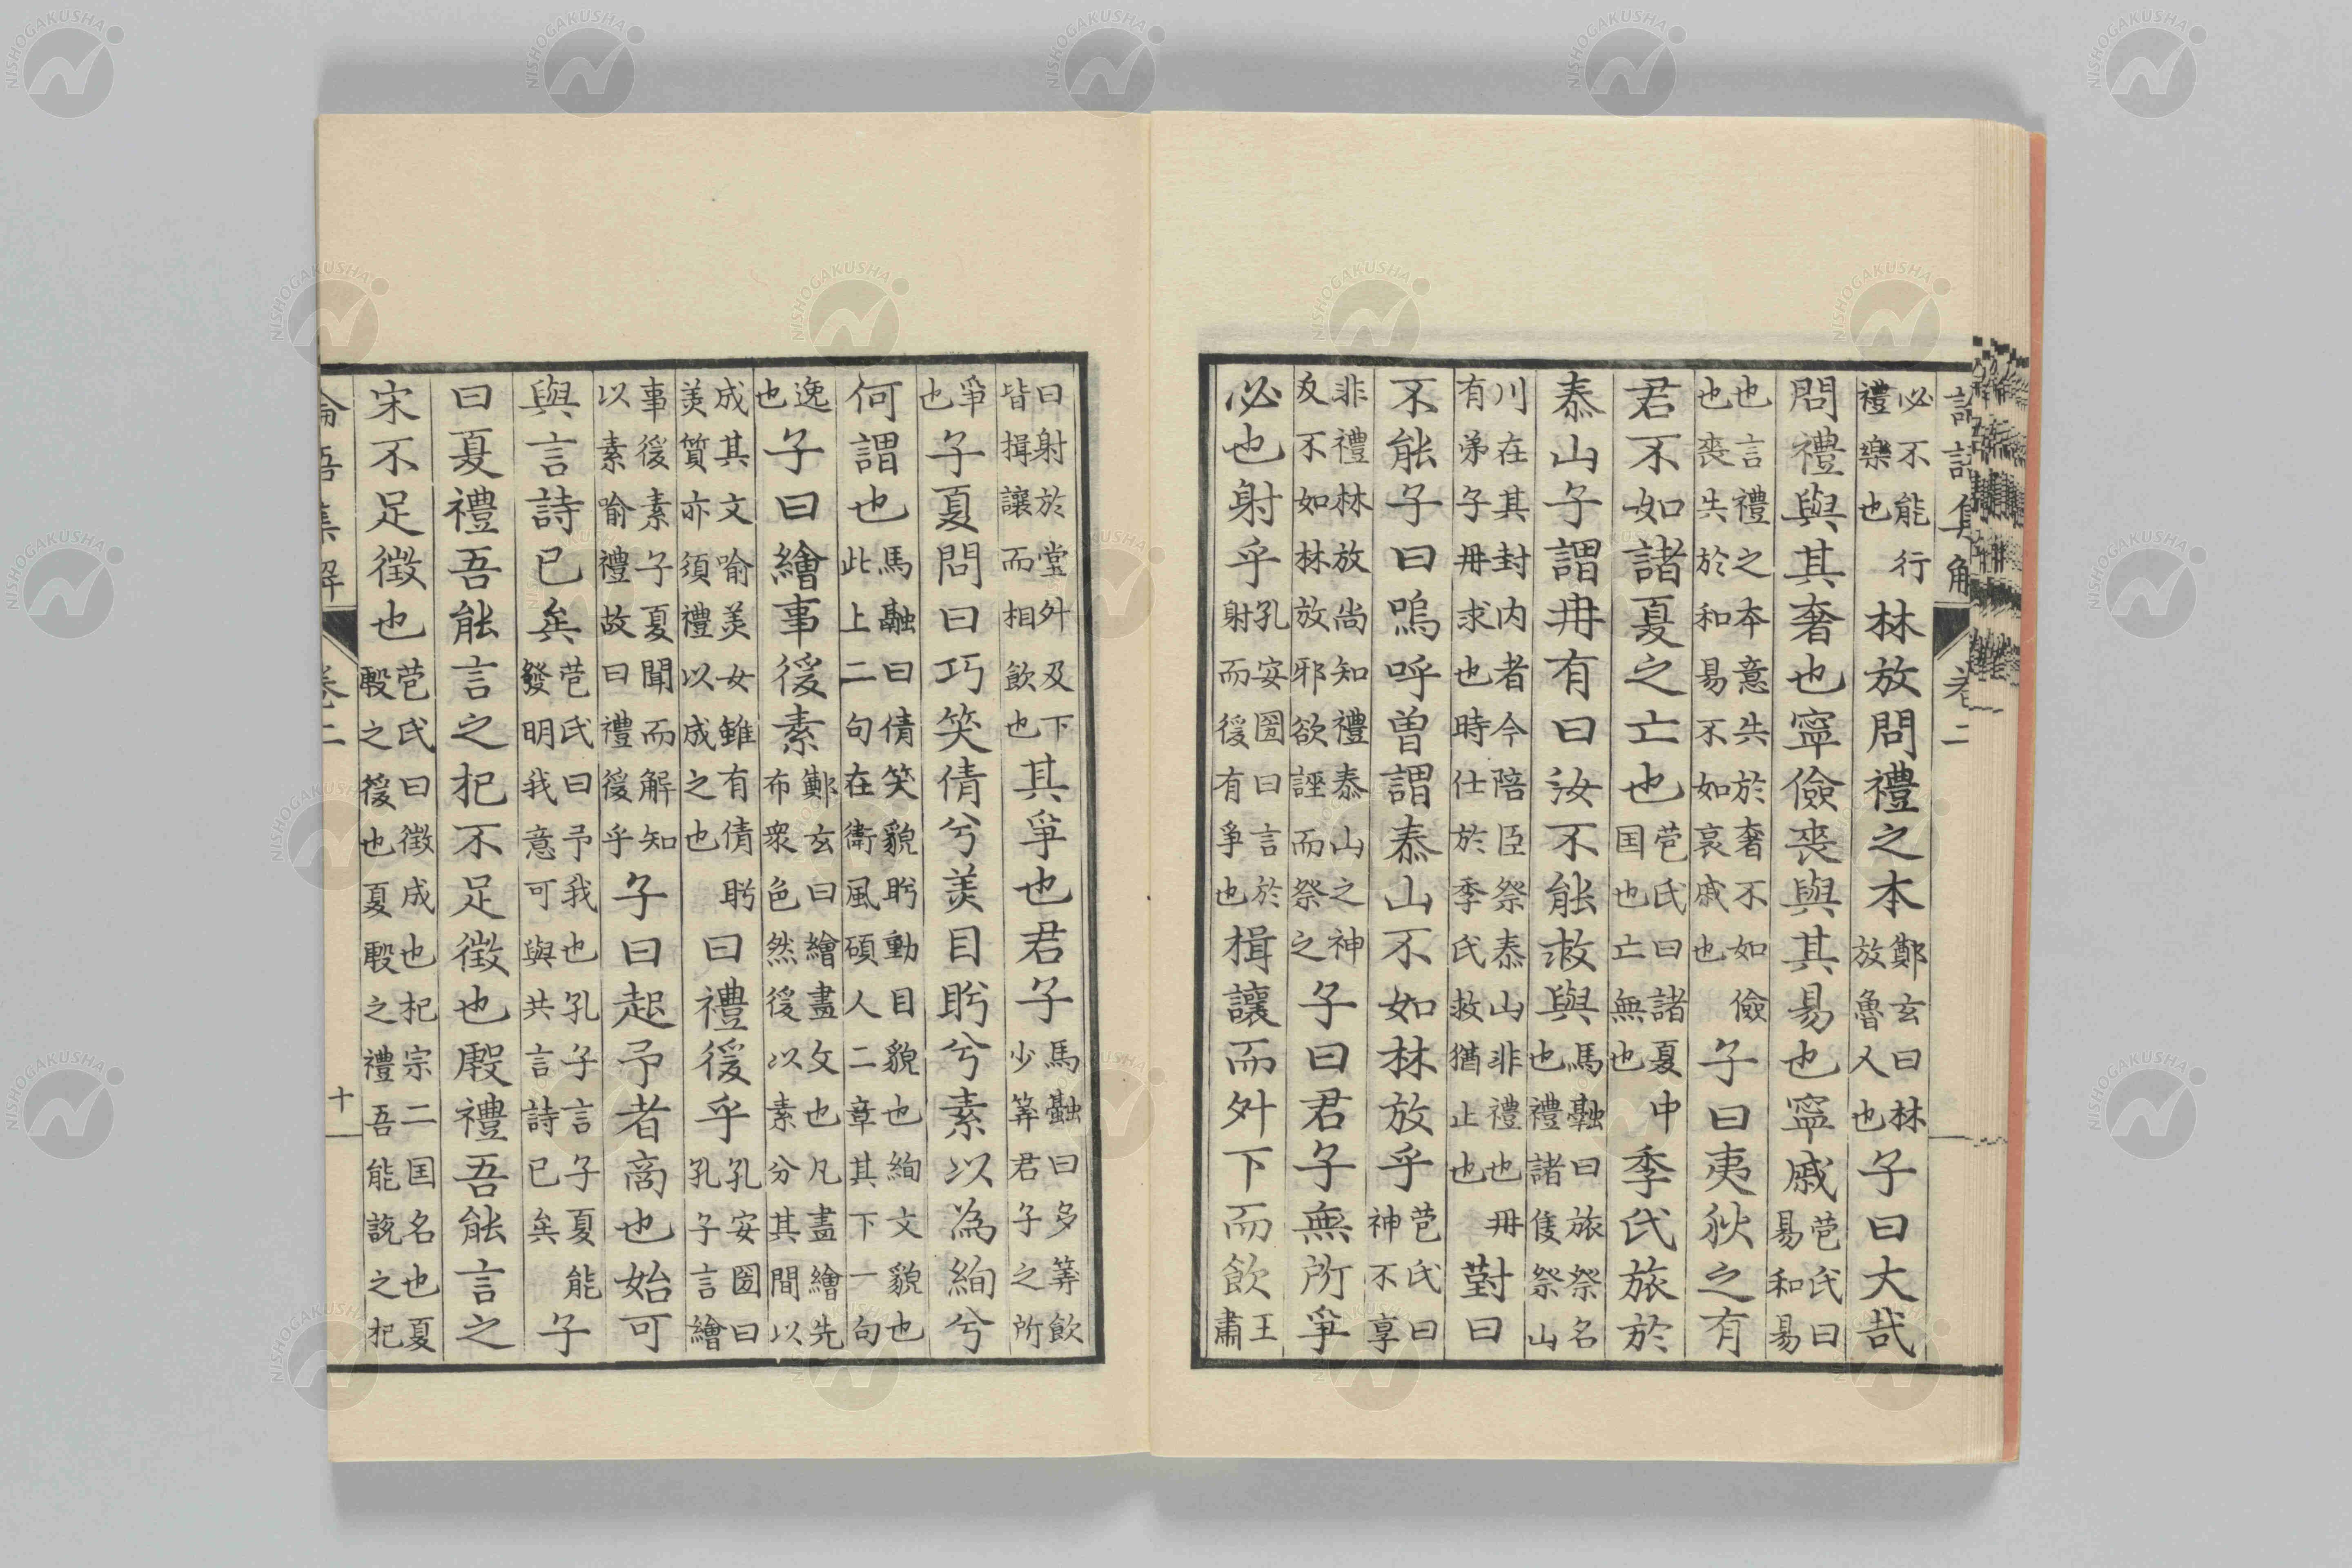 必不能行
禮樂也
林放問禮之本
鄭玄曰林
放魯人也
子曰大哉
問禮與其奢也寧儉喪與其易也寧戚
苞氏曰
易和易
也言禮之本意失於奢不如儉
也喪失於和易不如哀戚也
子曰夷狄之有
君不如諸夏之亡也
苞氏曰諸夏中
囯也亡無也
季氏旅於
泰山子謂冉有曰汝不能救與
馬融曰旅祭名
也禮諸侯祭山
川在其封内者今陪臣祭泰山非禮也冉
有弟子冉求也時仕於季氏救猶止也
對曰
不能子曰嗚呼曽謂泰山不如林放乎
苞氏曰
神不享
非禮林放尚知禮泰山之神
反不如林放邪欲誣而祭之
子曰君子無所爭
必也射乎
孔安囻曰言於
射而後有爭也
揖讓而升下而飲
王
肅
曰射於堂升及下
皆揖讓而相飲也
其爭也君子
馬融曰多筭飲
少筭君子之所
爭
也
子夏問曰巧笑倩兮美目盻兮素以為絢兮
何謂也
馬融曰倩笑貌盻動目貌也絢文貌也
此上二句在衛風碩人二章其下一句
逸
也
子曰繪事後素
鄭玄曰繪畫文也凡畫繪先
布衆色然後以素分其間以
成其文喻美女雖有倩盻
美質亦須禮以成之也
曰禮後乎
孔安囻曰
孔子言繪
事後素子夏聞而解知
以素喻禮故曰禮後乎
子曰起予者商也始可
與言詩已矣
苞氏曰予我也孔子言子夏能
發明我意可與共言詩已矣
子
曰夏禮吾能言之杞不足徵也殷禮吾能言之
宋不足徵也
苞氏曰徵成也杞宋二囯名也夏
殷之後也夏殷之禮吾能說之杞
論語集解
卷二
十